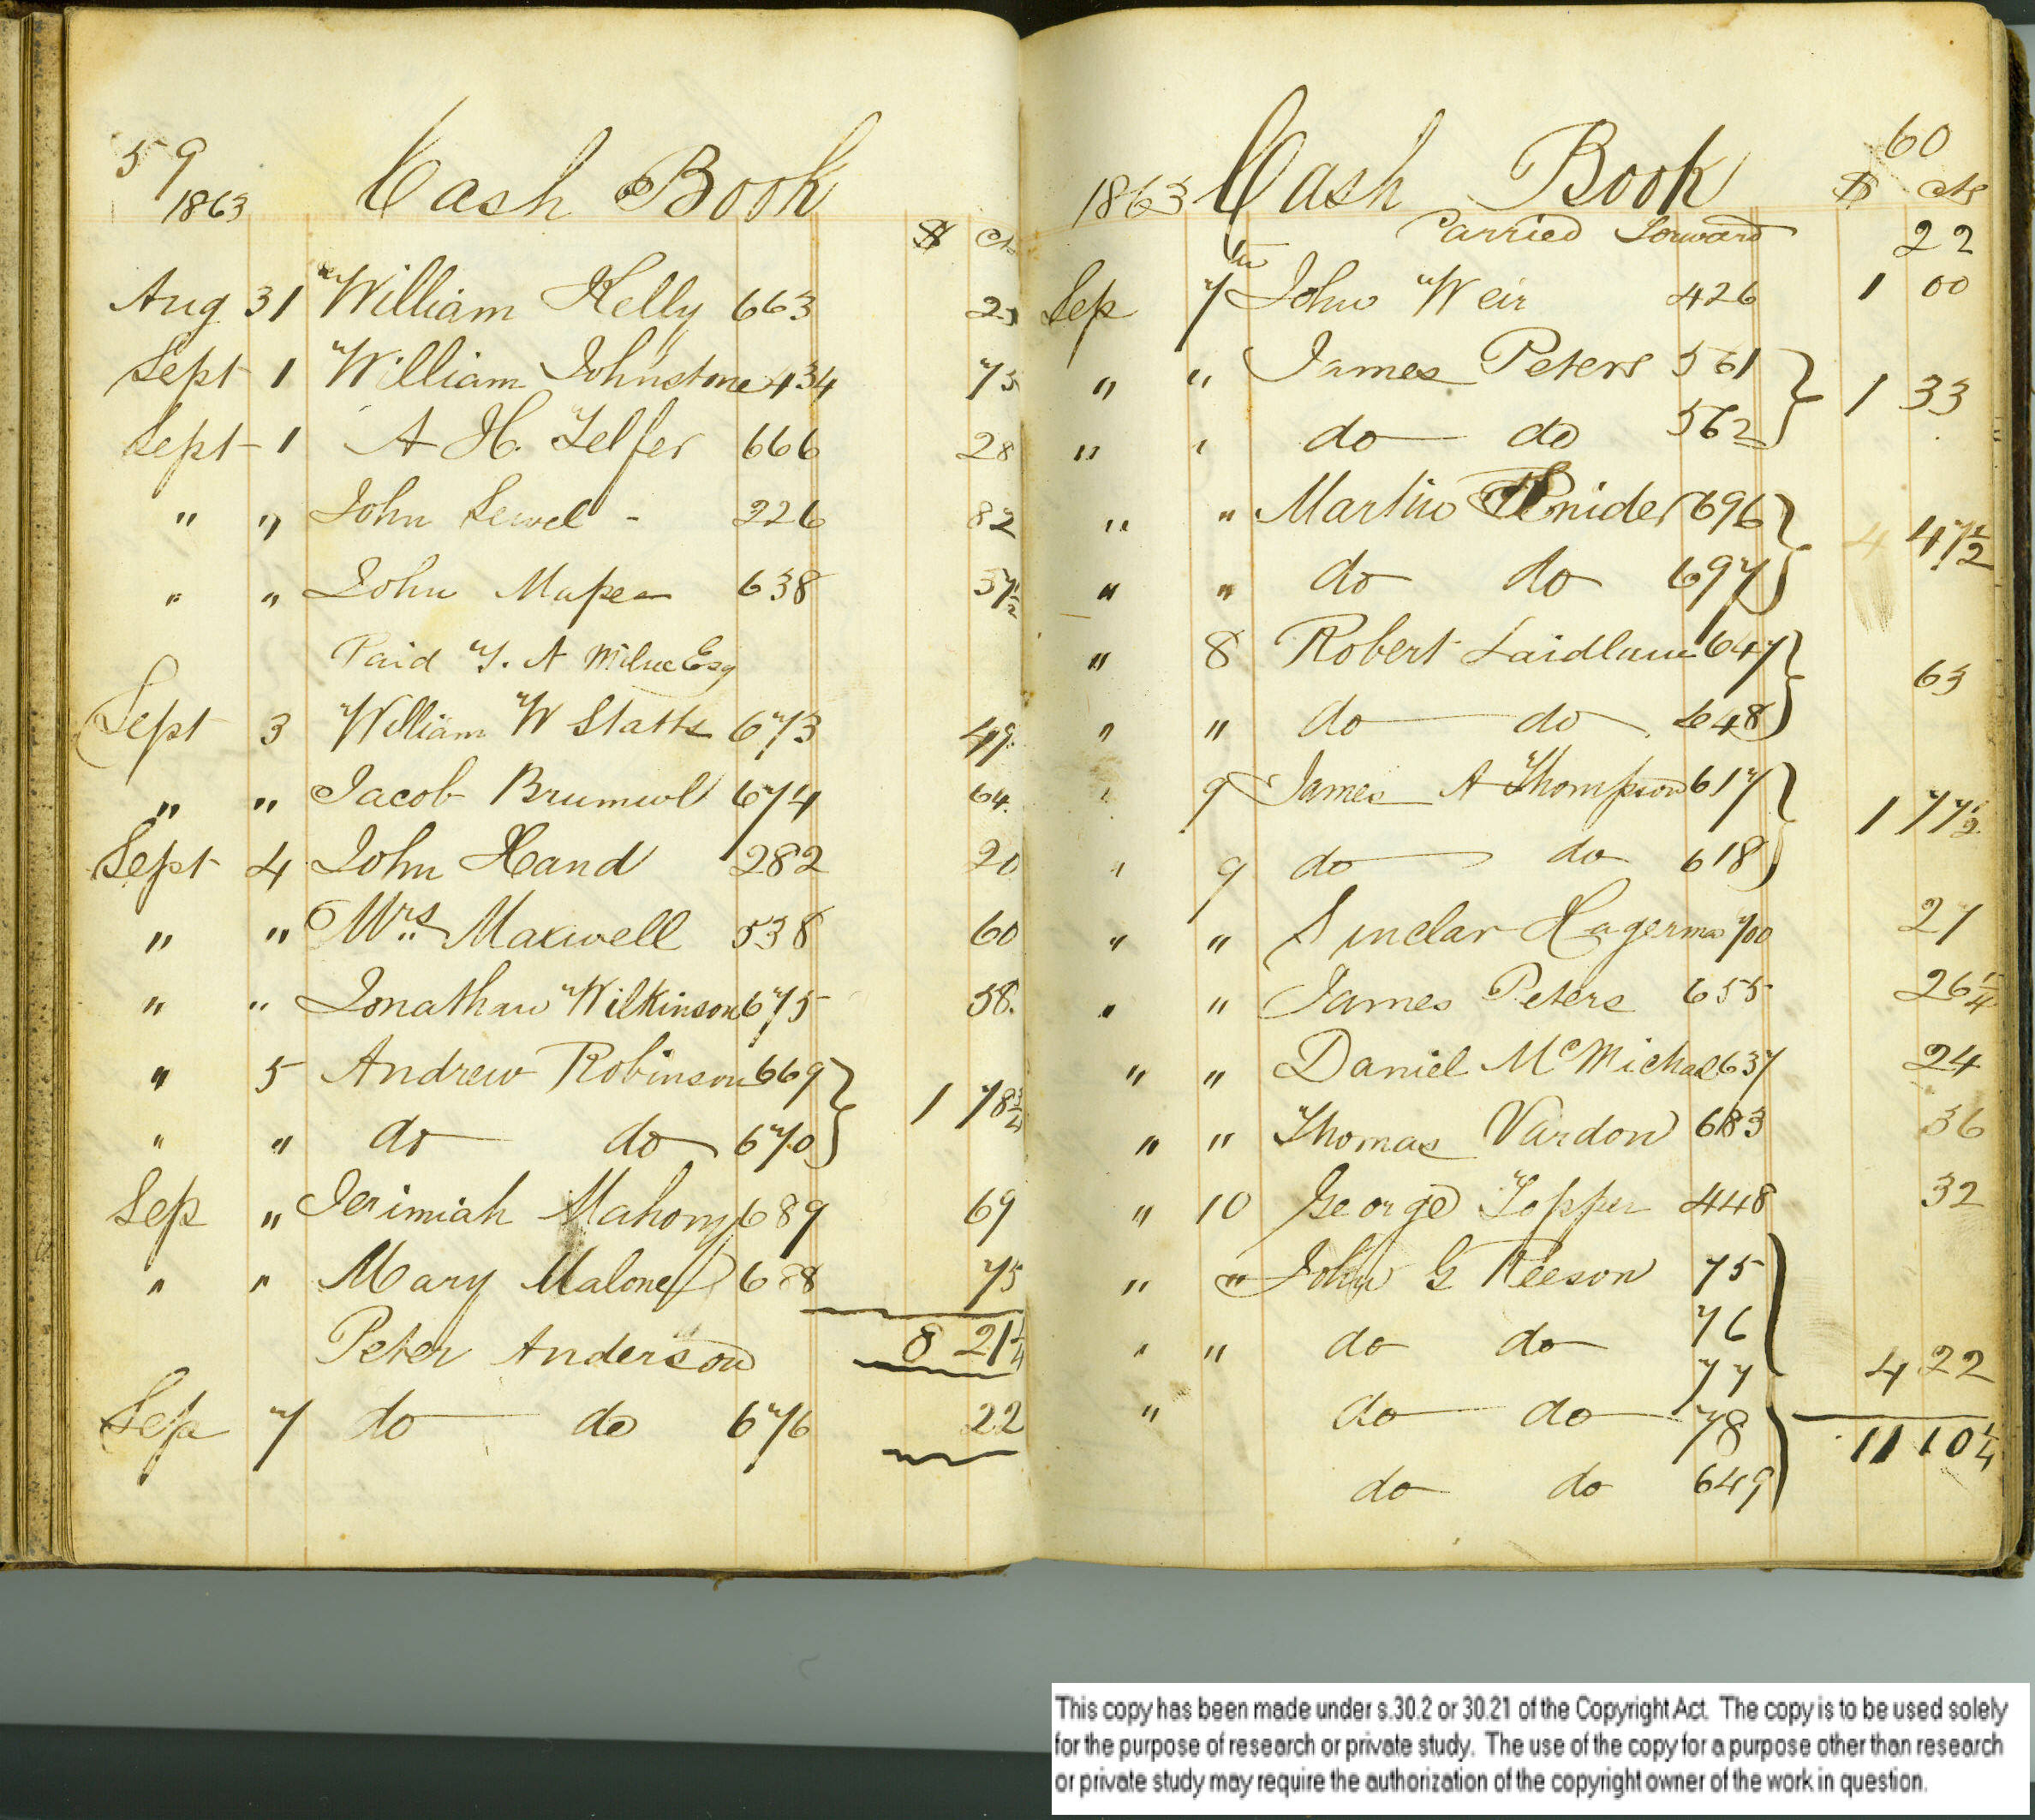 59
1863 Cash Book
$ Cts
Aug 31 William Kelly 663 25
Sept 1 William Johnstone 434 75
Sept 1 A H. Telfer 666 28
" " John Sewel - 226 82
" " John Mapes 638 37½
Paid T. A Milne Esq
Sept 3 William W Statts 673 49.
" " Jacob Brumwel 674 64.
Sept 4 John Hand 282 20
" " Mrs Maxwell 538 60
" " Jonathan Wilkinson 675 58.
" 5 Andrew Robinson 669 } 1 78¾
" " do do 670
Sep " Jerimiah Mahony 689 69
" " Mary Malone 688 75
8 21¼
Peter Anderson
Sep 7 do do 676 22
60
1863 Cash Book $ cts
Carried Forward 22
Sep 7th John Weir 426 1 00
" " James Peters 561 } 1 33
" " do do 562
" " Martin 696 } 47½
" " do do 697
" 8 Robert Laidlaw 647 } 63
" " do do 648
" 9 James A Thompson 617 } 1 77½
" 9 do do 618
" " Sinclar Hagerman 700 27
" " James Peters 655 26¼
" " Daniel McMichael 637 24
" " Thomas Vardon 683 36
" 10 George Topper 448 32
" " John G Reeson 75
" " do do 76
77 4 22
" do do 78
11 10¼
do do 649
This copy has been made under s.30.2 or 30.21 of the Copyright Act. The copy is to be used solely
for the purpose of research or private study. The use of the copy for a purpose other than research
or private study may require the authorization of the copyright owner of the work in question.